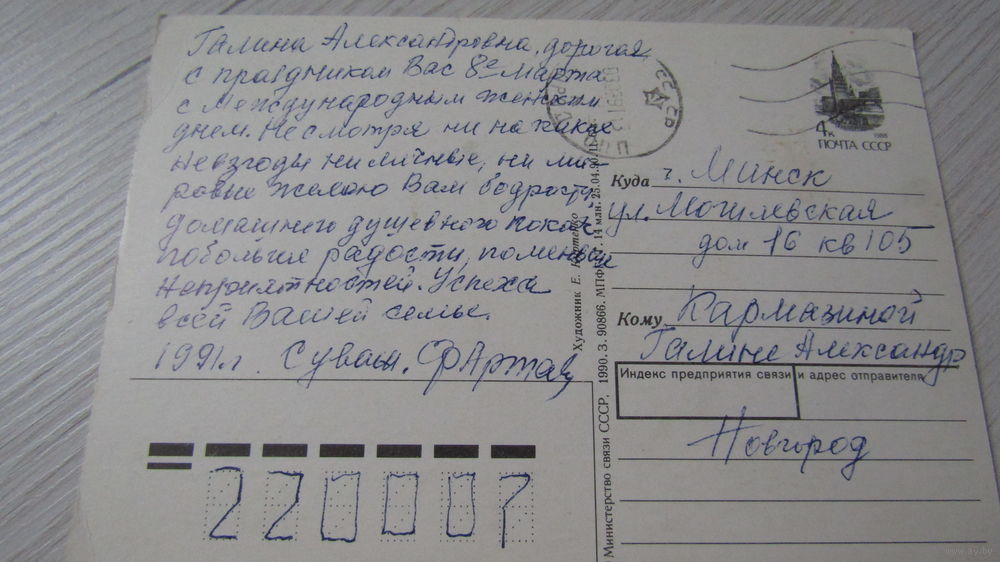 Галина Александровна, дорогая
с праздником Вас 8е Марта
с Международным женским
днем. Не смотря ни на какие
невзгоды ни личные, ни ми-
ровые желаю Вам бодрости,
домашнего душевного покоя
побольше радости, поменьше
неприятностей. Успеха
всей Вашей семье.
1991 г. С уваж.
4к
1988
ПОЧТА СССР
Куда г. Минск
ул. Могилевская
дом 16 кв 105
Кому Кармазиной
Галине Александр
Индекс предприятия связи и адрес отправителя
Новгород
220007
Художник Е.
© Министерство связи СССР, 1990. З. 90866. МПФГ. 14 млн. 25.04.90
www.ay.by